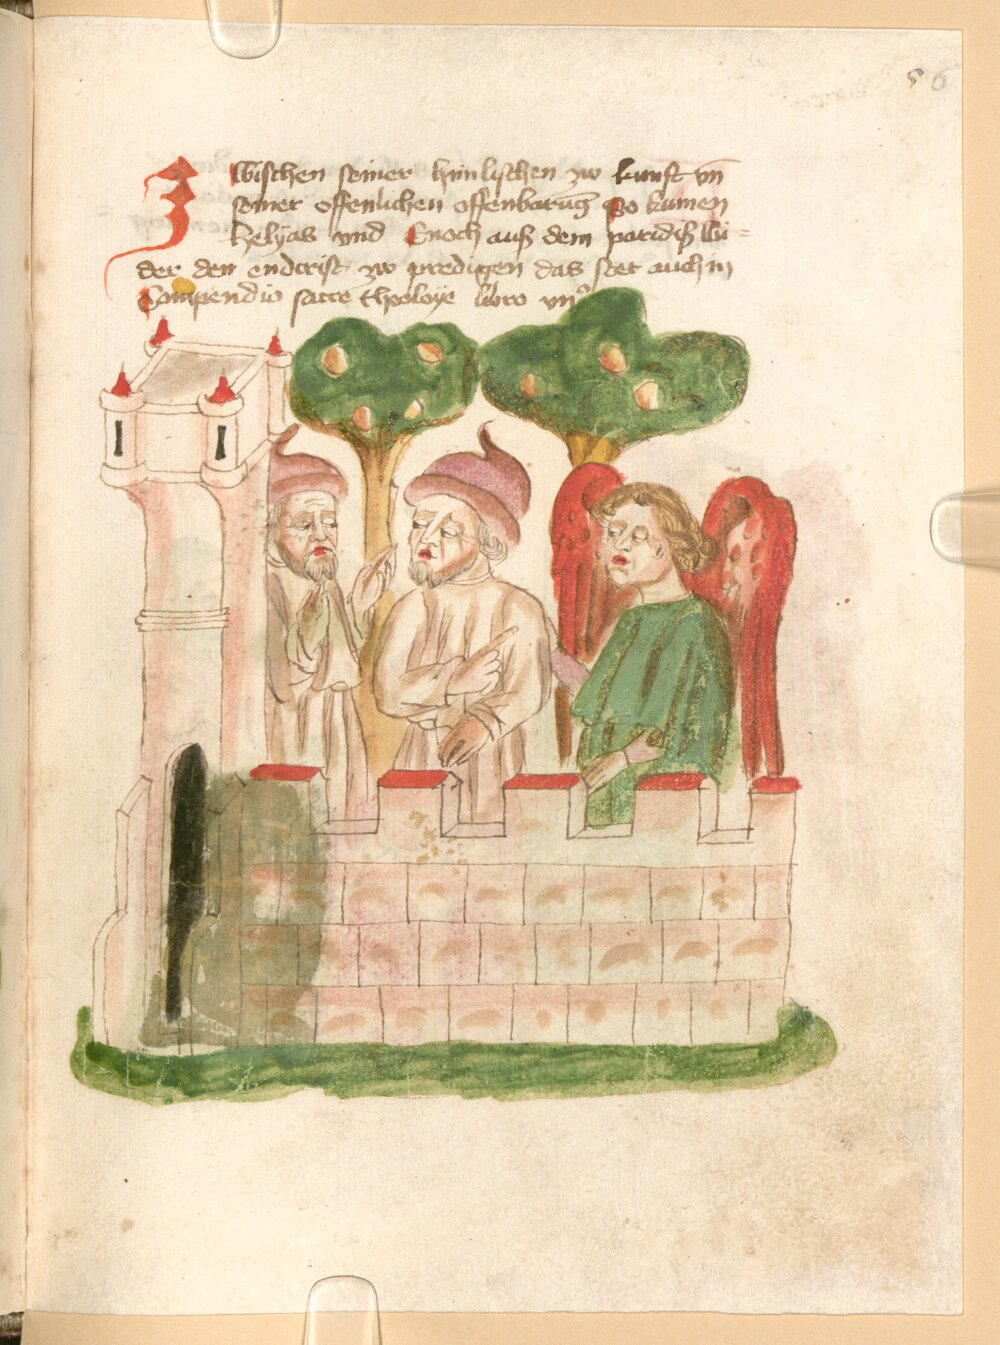 56
Zwischen seiner himlischen zw kunft vn̄
seiner offenlichen offenbarūg So kumen
Helyas vnd Enoch auß dem paradiß wi=
der den endcrist zw predigen das stet auch in
Compendio sacre theoloye libro vn̄